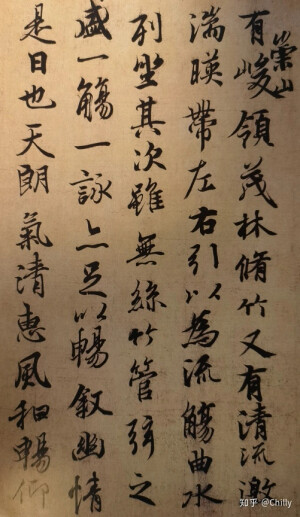 有崇山峻領茂林脩竹又有清流激
湍暎帶左右引以為流觴曲水
列坐其次雖無絲竹管弦之
盛一觴一詠亦足以暢敘幽情
是日也天朗氣清惠風和暢仰
知乎 @Chilly